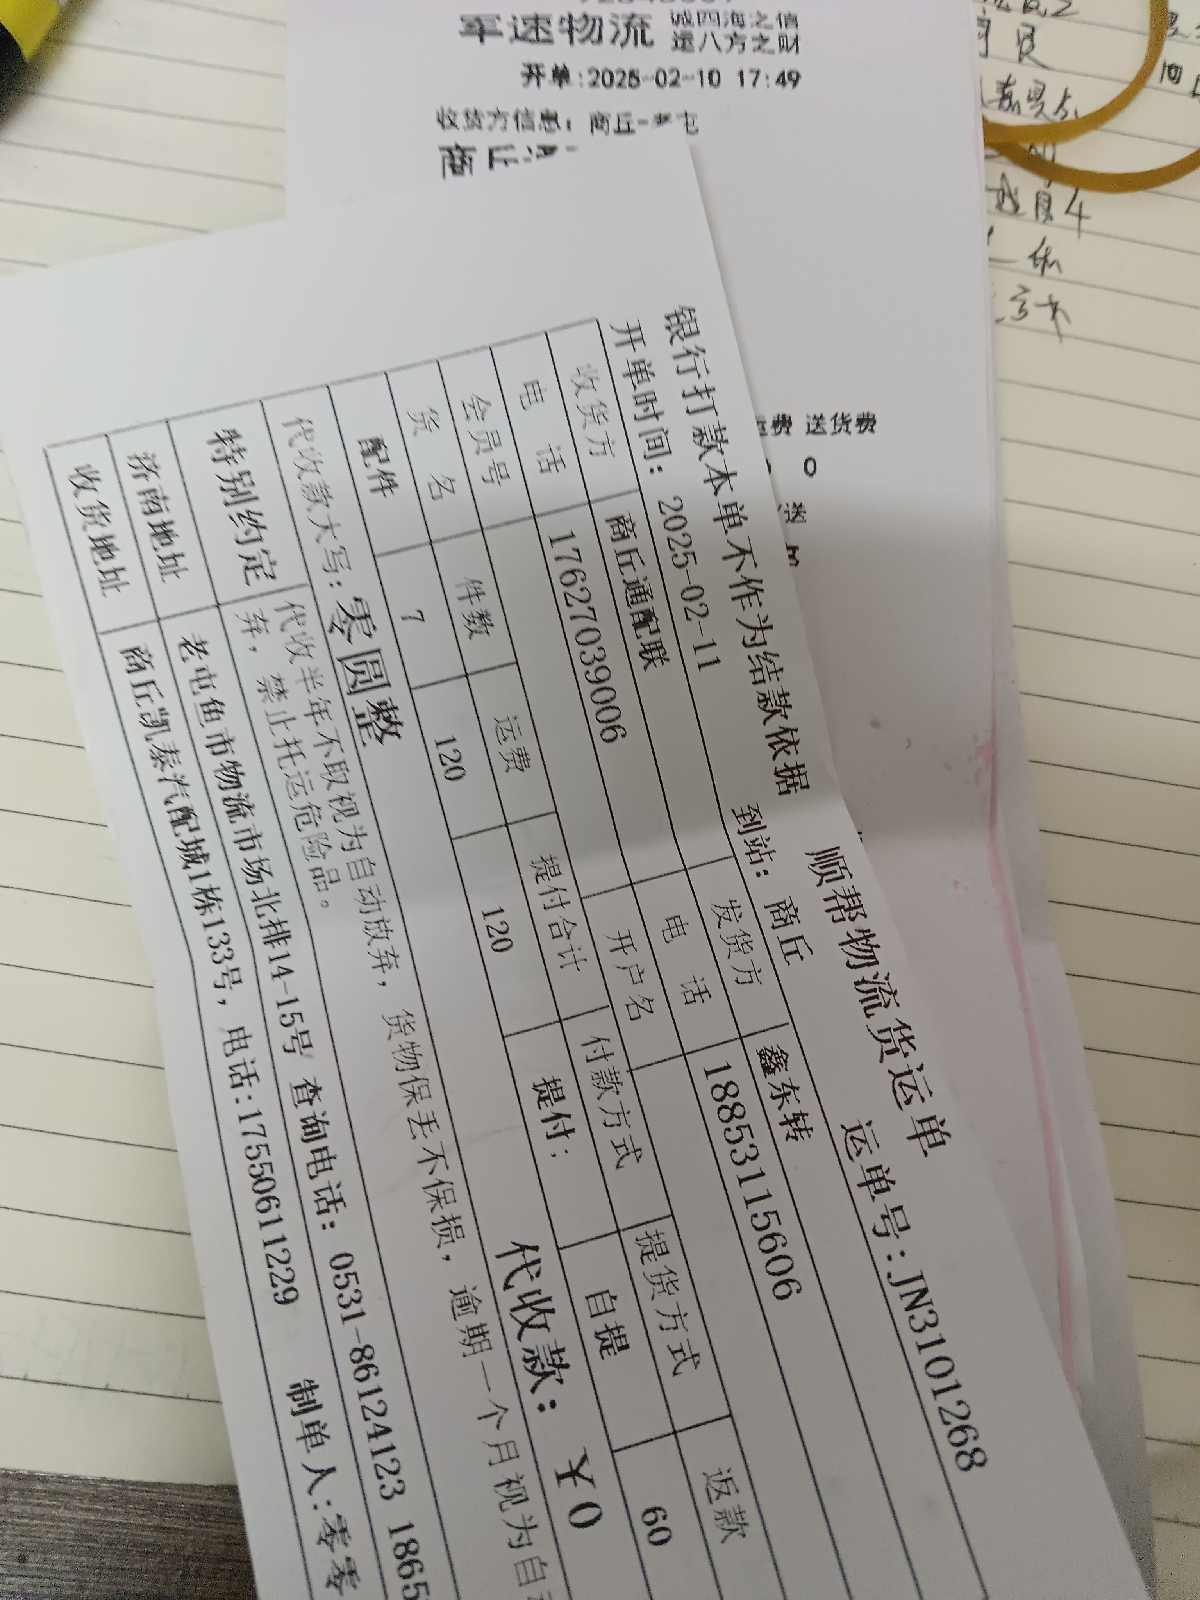 军速物流 诚四海之信
运八方之财
开单:2025-02-10 17:49
收货方信息: 商丘-老屯
商丘通
运费 送货费
0
送
顺帮物流货运单
银行打款本单不作为结款依据
运单号:JN3101268
开单时间: 2025-02-11 到站: 商丘
收货方 商丘通配联 发货方 鑫东转
电 话 17627039006 电 话 18853115606
会员号 开户名
货 名 件数 运费 提付合计 付款方式 提货方式 返款
配件 7 120 120 提付: 自提 60
代收款大写: 零圆整 代收款: ¥0
特别约定 代收半年不取视为自动放弃, 货物保丢不保损, 逾期一个月视为自动
弃, 禁止托运危险品。
济南地址 老屯鱼市物流市场北排14-15号 查询电话: 0531-86124123 1865
收货地址 商丘凯泰汽配城1栋133号, 电话:17550611229 制单人:零零